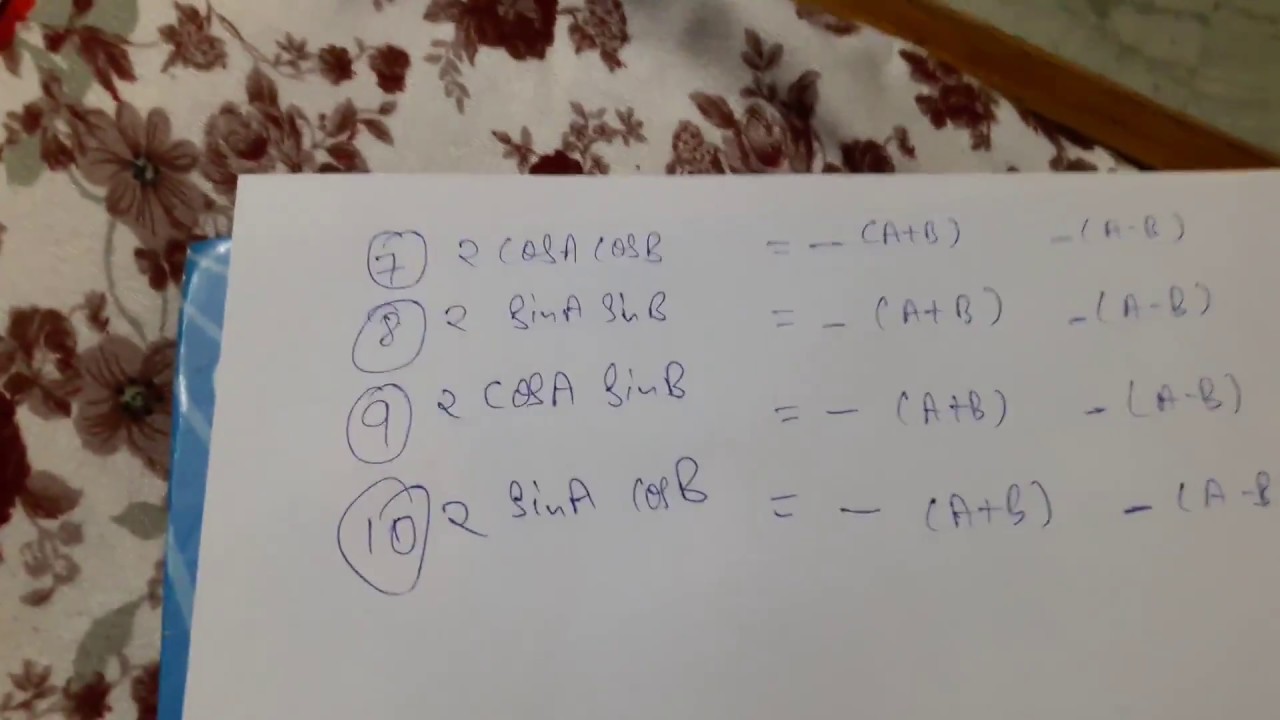 7 2 cosA cosB = - (A+B) - (A-B)
8 2 sinA sinB = - (A+B) - (A-B)
9 2 cosA sinB = - (A+B) - (A-B)
10 2 sinA cosB = - (A+B) - (A-B